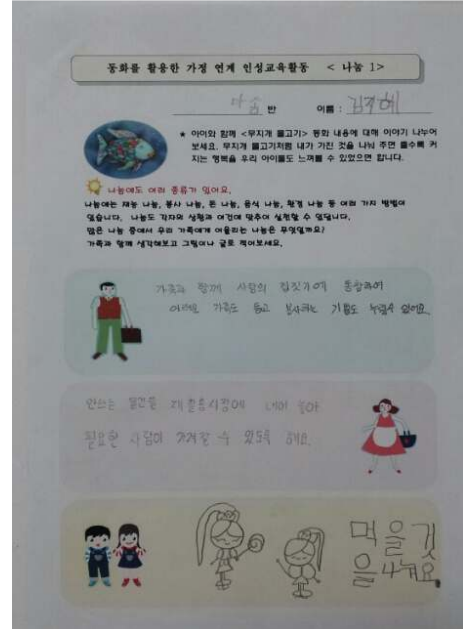 동화를 활용한 가정 연계 인성교육활동 < 나눔 1>
다솜 반 이름 : 김지혜
★ 아이와 함께 <무지개 물고기> 동화 내용에 대해 이야기 나누어
보세요. 무지개 물고기처럼 내가 가진 것을 나눠 주면 줄수록 커
지는 행복을 우리 아이들도 느껴볼 수 있었으면 합니다.
나눔에도 여러 종류가 있어요.
나눔에는 재능 나눔, 봉사 나눔, 돈 나눔, 음식 나눔, 환경 나눔 등 여러 가지 방법이
있습니다. 나눔도 각자의 상황과 여건에 맞추어 실천할 수 있답니다.
많은 나눔 중에서 우리 가족에게 어울리는 나눔은 무엇일까요?
가족과 함께 생각해보고 그림이나 글로 적어보세요.
가족과 함께 사랑의 집짓기에 동참하여
어려운 가족도 돕고 봉사하는 기쁨도 누릴수 있어요.
안쓰는 물건을 재활용시장에 내어 놓아
필요한 사람이 가져갈 수 있도록 해요.
먹을것
을나눠요